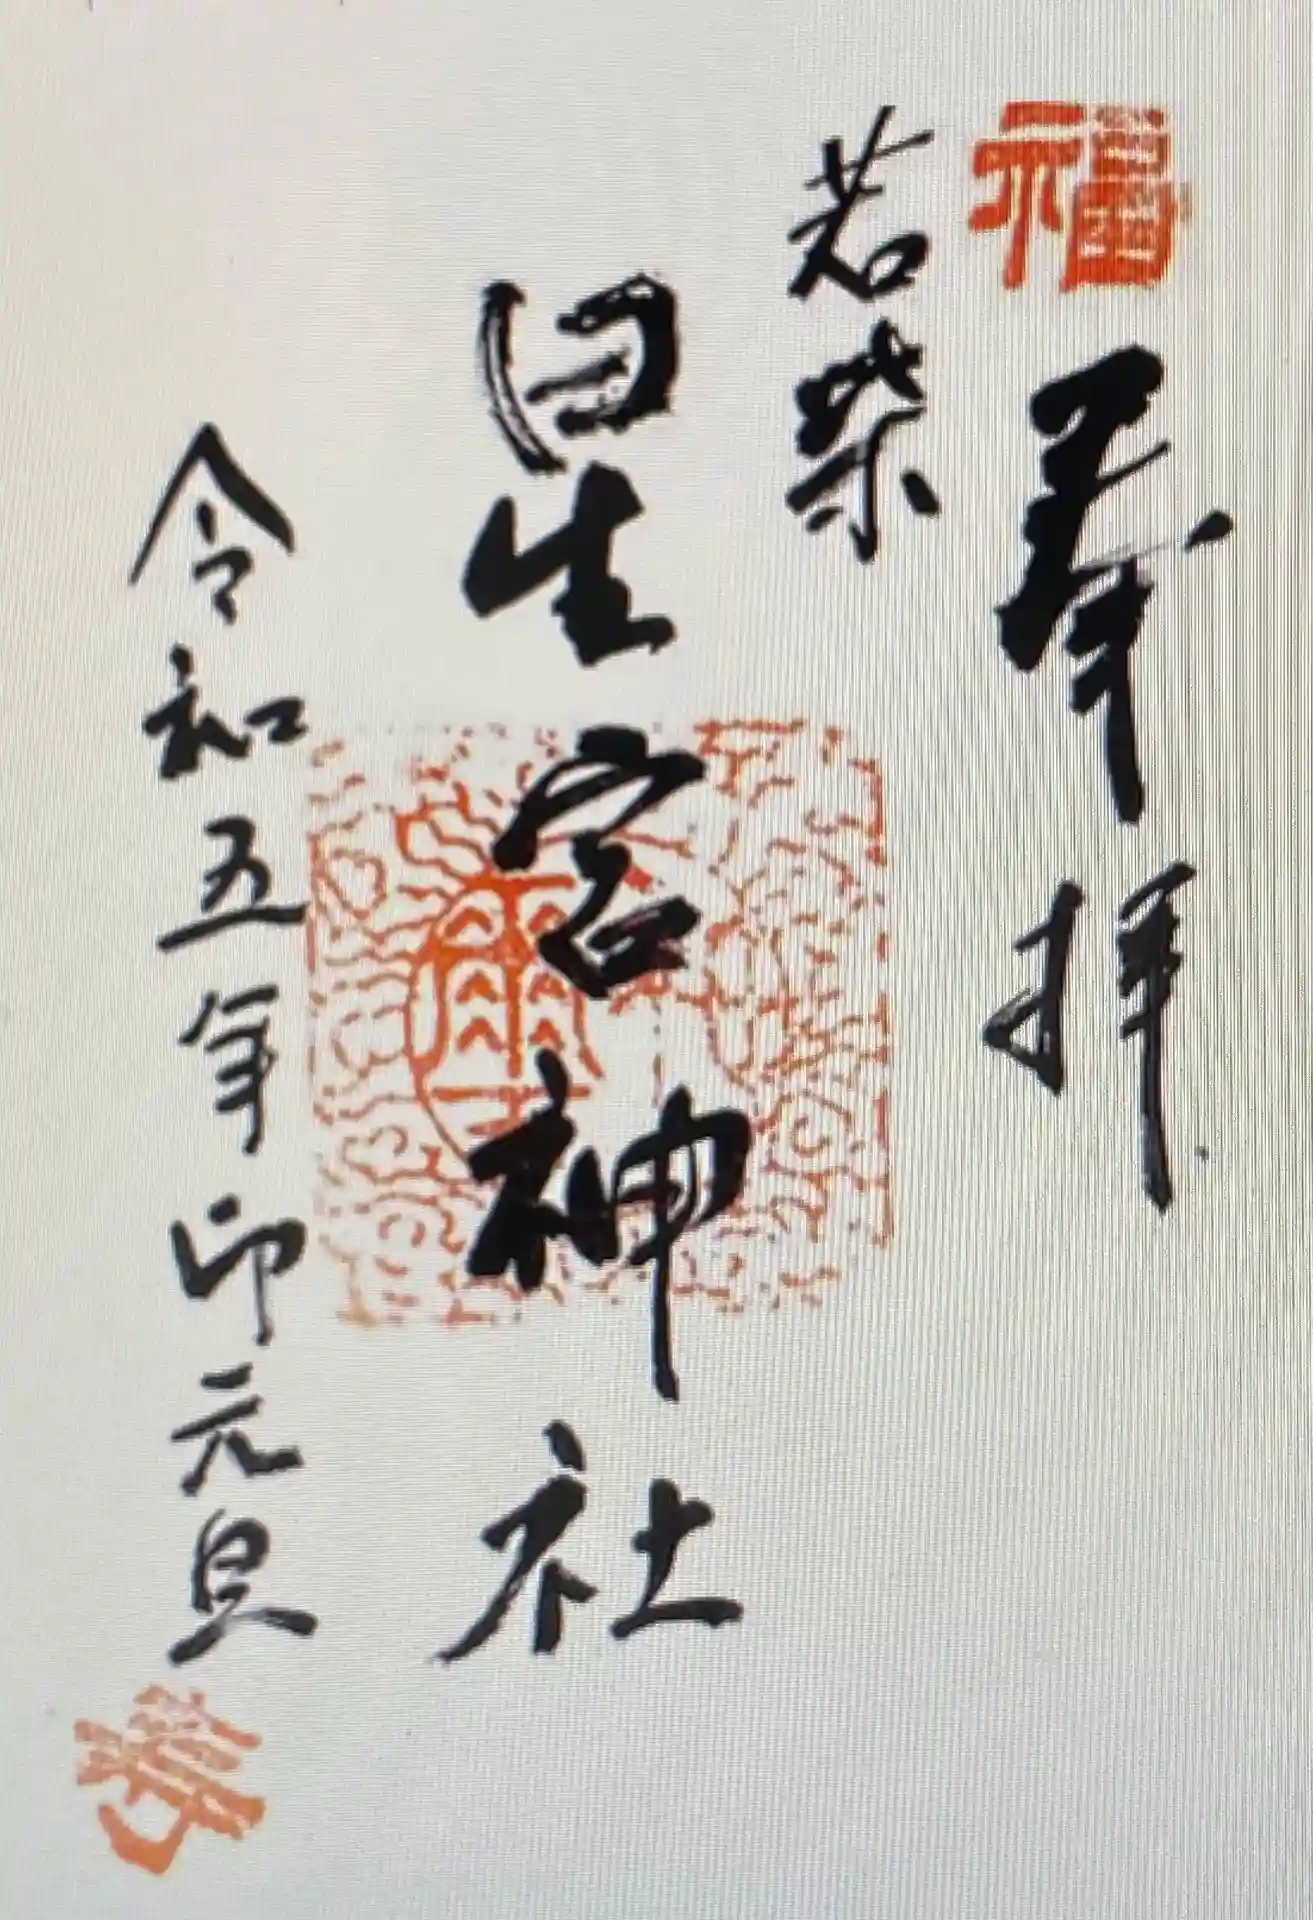 福
奉拝
若柴
星宮神社
令和五年卯元旦